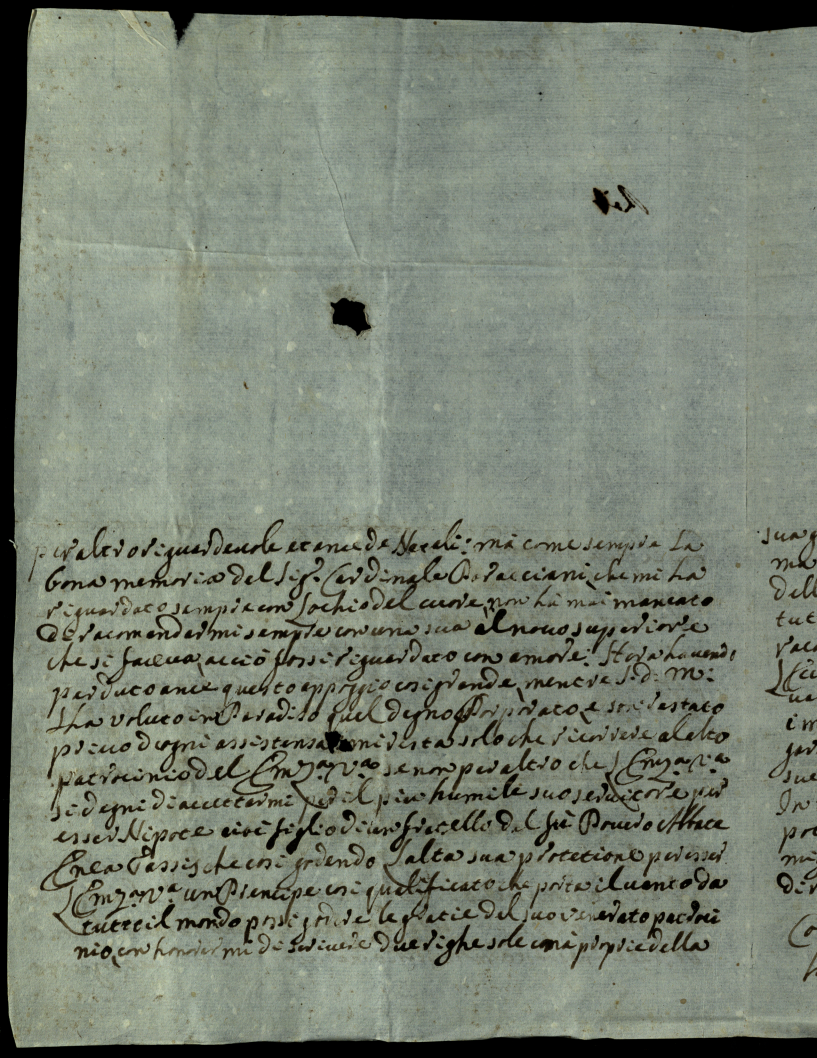 per altro riguardevole et anco de Natali: ma come sempre la
bona memoria del Sig.r Cardinale Baracciani, che mi ha
riguardato sempre con l'ochio del cuore, non ha mai mancato
di racomandarmi sempre con una sua al novo superiore
che si faceva, acciò fossi riguardato con amore. Hora havendo
perduto anco questo appoggio così grande, mentre S. D. M.
l'ha voluto in Paradiso quel degno Porporato, e son restato
privo d'ogni assistenza mi resta solo che ricorrere al alto
patrocinio del Emza va se non per altro che l'Emza va
si degni di accettarmi per il più humile suo servitore per
esser Nipote cioè figlio di un fratello del fù Povero Abbate
Enea Tassis che così godendo l'alta sua protetione per esser
l'Emza va un Prencipe così qualificato che porta il vanto da
tutto il mondo possi godere le gratie del suo venerato patroci
nio, con honorarmi di scrivere due righe sole con a proprie della
sua
ma
dell
tut
im
sue
In
po
mi
di
Co